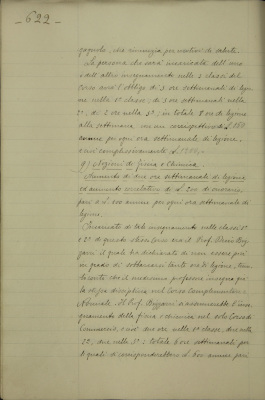 - 622 -
gagnols, che rinunzia per motivi di salute.
La persona che sarà incaricata dell'uno
e dell'altro insegnamento nelle 3 classi del
corso avrà l'obbligo di 3 ore settimanali di lezio
ne nella 1ª classe; di 3 ore settimanali nella
2ª; di 2 ore nella 3ª; in totale 8 ore di lezione
alla settimana, con un corrispettivo di L. 150
annue per ogni ora settimanale di lezione,
e così complessivamente L. 1200.-
g) Nozioni di fisica e Chimica.
Aumento di due ore settimanali di lezione
ed aumento correlativo di L. 200 di onorario,
pari a L. 100 annue per ogni ora settimanale di
lezione.
Incaricato di tale insegnamento nelle classi 1ª
e 2ª di questo stesso corso era il Prof.
il quale ha dichiarato di non essere più
in grado di sobbarcarsi tante ore di lezione, tenu
to conto che il medesimo professore insegna pu
re la stessa disciplina nel Corso Complementare
Normale. Il Prof. si ammetterebbe l'inse
gnamento della fisica e chimica nel solo Corso di
Commercio, e così due ore nella 1ª classe, due nella
2ª, due nella 3ª: totale 6 ore settimanali per
le quali si corrisponderebbero L. 600 annue pari